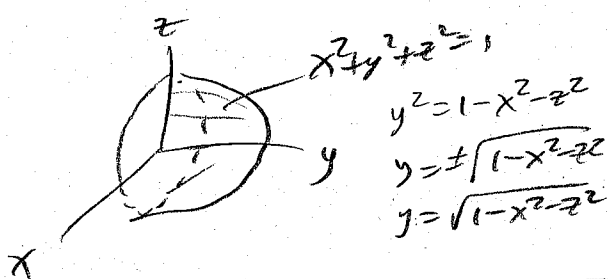 z
x²+y²+z²=1
y²=1-x²-z²
y=±√(1-x²-z²)
y=√(1-x²-z²)
y
x